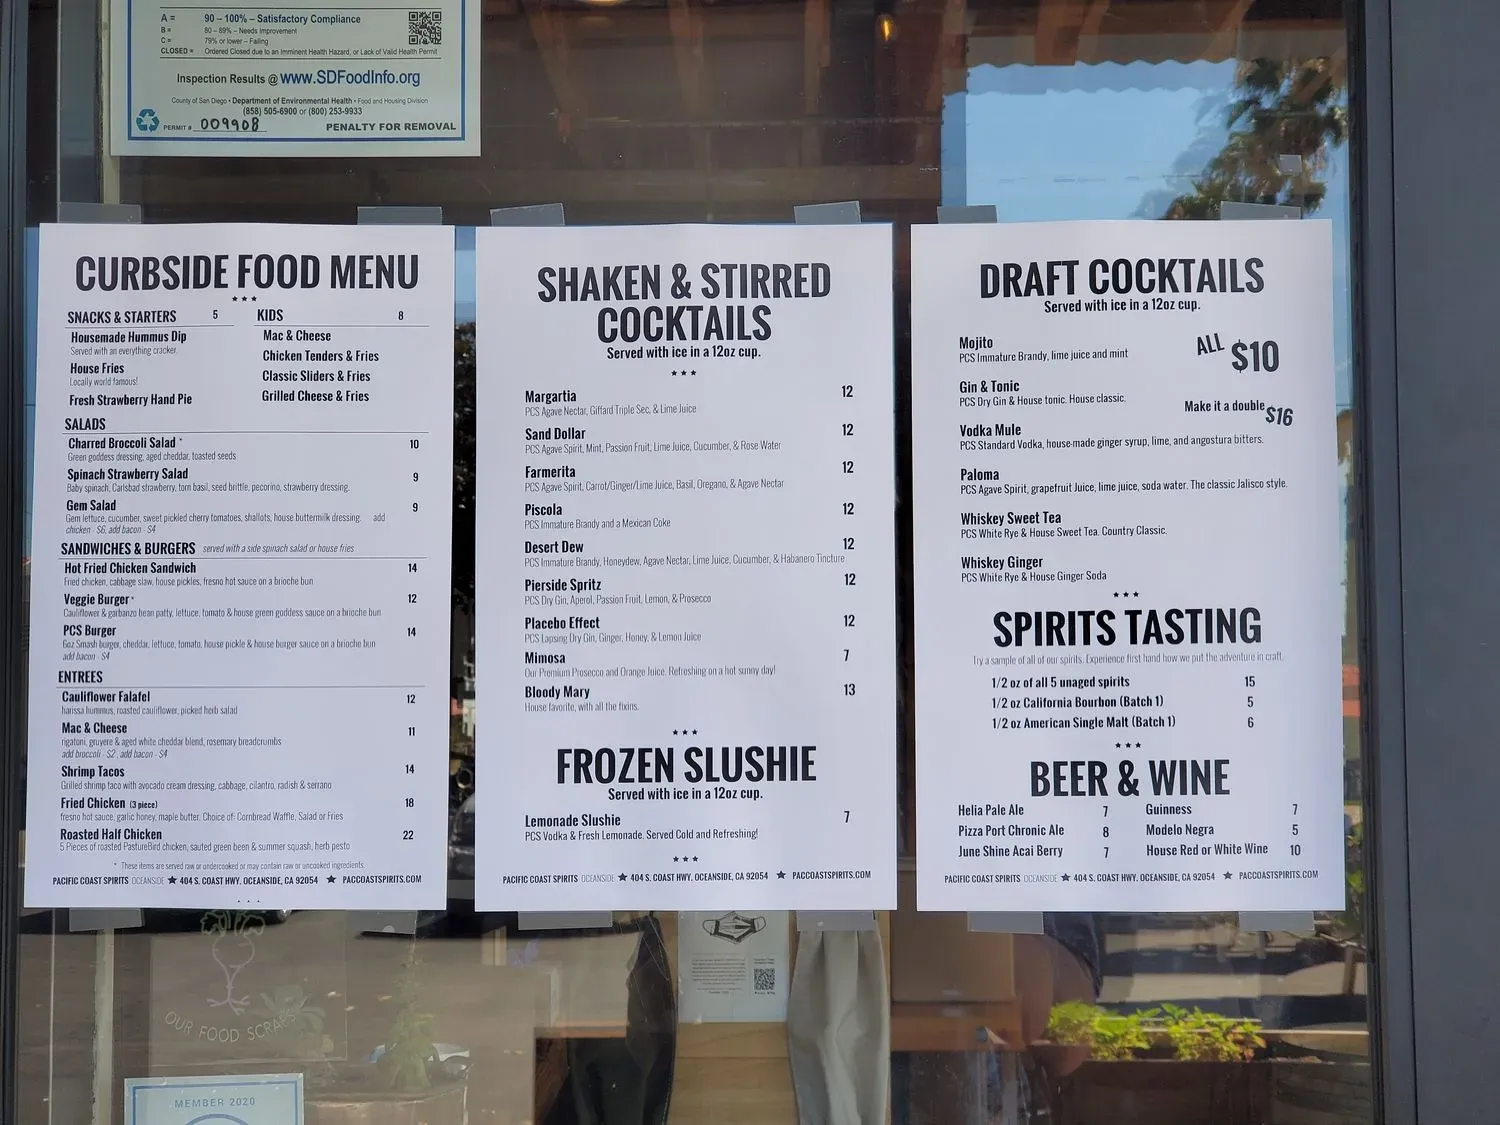 A = 90 – 100% – Satisfactory Compliance
B = 80 – 89% – Needs Improvement
C = 79% or lower – Failing
CLOSED = Ordered Closed due to an Imminent Health Hazard, or Lack of Valid Health Permit
Inspection Results @ www.SDFoodInfo.org
County of San Diego • Department of Environmental Health • Food and Housing Division
(858) 505-6900 or (800) 253-9933
PERMIT # 009908 PENALTY FOR REMOVAL
CURBSIDE FOOD MENU
SNACKS & STARTERS 5
Housemade Hummus Dip
Served with an everything cracker.
House Fries
Locally world famous!
Fresh Strawberry Hand Pie
KIDS 8
Mac & Cheese
Chicken Tenders & Fries
Classic Sliders & Fries
Grilled Cheese & Fries
SALADS
Charred Broccoli Salad * 10
Green goddess dressing, aged cheddar, toasted seeds
Spinach Strawberry Salad 9
Baby spinach, Carlsbad strawberry, torn basil, seed brittle, pecorino, strawberry dressing.
Gem Salad 9
Gem lettuce, cucumber, sweet pickled cherry tomatoes, shallots, house buttermilk dressing. add
chicken - $6, add bacon - $4
SANDWICHES & BURGERS served with a side spinach salad or house fries
Hot Fried Chicken Sandwich 14
Fried chicken, cabbage slaw, house pickles, fresno hot sauce on a brioche bun
Veggie Burger * 12
Cauliflower & garbanzo bean patty, lettuce, tomato & house green goddess sauce on a brioche bun
PCS Burger 14
6oz Smash burger, cheddar, lettuce, tomato, house pickle & house burger sauce on a brioche bun
add bacon - $4
ENTREES
Cauliflower Falafel 12
harissa hummus, roasted cauliflower, picked herb salad
Mac & Cheese 11
rigatoni, gruyere & aged white cheddar blend, rosemary breadcrumbs
add broccoli - $2 , add bacon - $4
Shrimp Tacos 14
Grilled shrimp taco with avocado cream dressing, cabbage, cilantro, radish & serrano
Fried Chicken (3 piece) 18
fresno hot sauce, garlic honey, maple butter, Choice of: Cornbread Waffle, Salad or Fries
Roasted Half Chicken 22
5 Pieces of roasted PastureBird chicken, sauted green been & summer squash, herb pesto
* These items are served raw or undercooked or may contain raw or uncooked ingredients.
PACIFIC COAST SPIRITS OCEANSIDE ★ 404 S. COAST HWY. OCEANSIDE, CA 92054 ★ PACCOASTSPIRITS.COM
SHAKEN & STIRRED
COCKTAILS
Served with ice in a 12oz cup.
Margartia 12
PCS Agave Nectar, Giffard Triple Sec, & Lime Juice
Sand Dollar 12
PCS Agave Spirit, Mint, Passion Fruit, Lime Juice, Cucumber, & Rose Water
Farmerita 12
PCS Agave Spirit, Carrot/Ginger/Lime Juice, Basil, Oregano, & Agave Nectar
Piscola 12
PCS Immature Brandy and a Mexican Coke
Desert Dew 12
PCS Immature Brandy, Honeydew, Agave Nectar, Lime Juice, Cucumber, & Habanero Tincture
Pierside Spritz 12
PCS Dry Gin, Aperol, Passion Fruit, Lemon, & Prosecco
Placebo Effect 12
PCS Lapsing Dry Gin, Ginger, Honey, & Lemon Juice
Mimosa 7
Our Premium Prosecco and Orange Juice. Refreshing on a hot sunny day!
Bloody Mary 13
House favorite, with all the fixins.
FROZEN SLUSHIE
Served with ice in a 12oz cup.
Lemonade Slushie 7
PCS Vodka & Fresh Lemonade. Served Cold and Refreshing!
PACIFIC COAST SPIRITS OCEANSIDE ★ 404 S. COAST HWY. OCEANSIDE, CA 92054 ★ PACCOASTSPIRITS.COM
DRAFT COCKTAILS
Served with ice in a 12oz cup.
ALL $10
Make it a double $16
Mojito
PCS Immature Brandy, lime juice and mint
Gin & Tonic
PCS Dry Gin & House tonic. House classic.
Vodka Mule
PCS Standard Vodka, house-made ginger syrup, lime, and angostura bitters.
Paloma
PCS Agave Spirit, grapefruit Juice, lime juice, soda water. The classic Jalisco style.
Whiskey Sweet Tea
PCS White Rye & House Sweet Tea. Country Classic.
Whiskey Ginger
PCS White Rye & House Ginger Soda
SPIRITS TASTING
Try a sample of all of our spirits. Experience first hand how we put the adventure in craft.
1/2 oz of all 5 unaged spirits 15
1/2 oz California Bourbon (Batch 1) 5
1/2 oz American Single Malt (Batch 1) 6
BEER & WINE
Helia Pale Ale 7
Pizza Port Chronic Ale 8
June Shine Acai Berry 7
Guinness 7
Modelo Negra 5
House Red or White Wine 10
PACIFIC COAST SPIRITS OCEANSIDE ★ 404 S. COAST HWY. OCEANSIDE, CA 92054 ★ PACCOASTSPIRITS.COM
OUR FOOD SCRAPS
MEMBER 2020